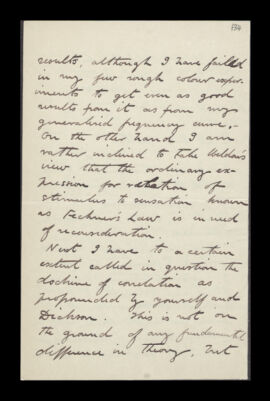 results, although I have failed
in my few rough colour exper-
iments to get even as good
results from it as from my
generalised frequency curve.
On the other hand I am
rather inclined to take Weldon's
view that the ordinary ex-
pression for relation of
stimulus to sensation known
as Fechner's Law is in need
of reconsideration.
Next I have to a certain
extent called in question the
doctrine of correlation as
propounded by yourself and
Dickson. This is not on
the ground of any fundamental
difference in theory, but